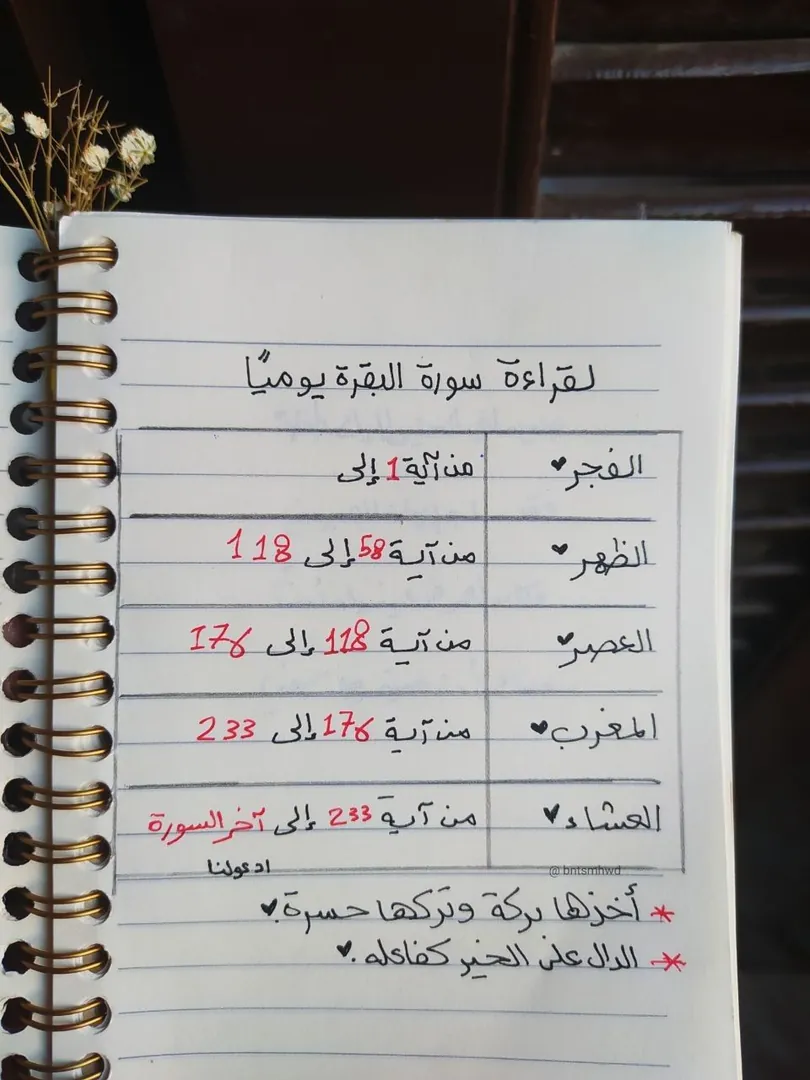 لقراءة سورة البقرة يوميًا
الفجر♥ من آية 1 إلى
الظهر♥ من آية 58 إلى 118
العصر♥ من آية 118 إلى 176
المغرب♥ من آية 176 إلى 233
العشاء♥ من آية 233 إلى آخر السورة
ادعولنا
@bntsmhwd
* أخزها بركة وتركها حسرة.♥
* الدال على الخير كفاعله.♥